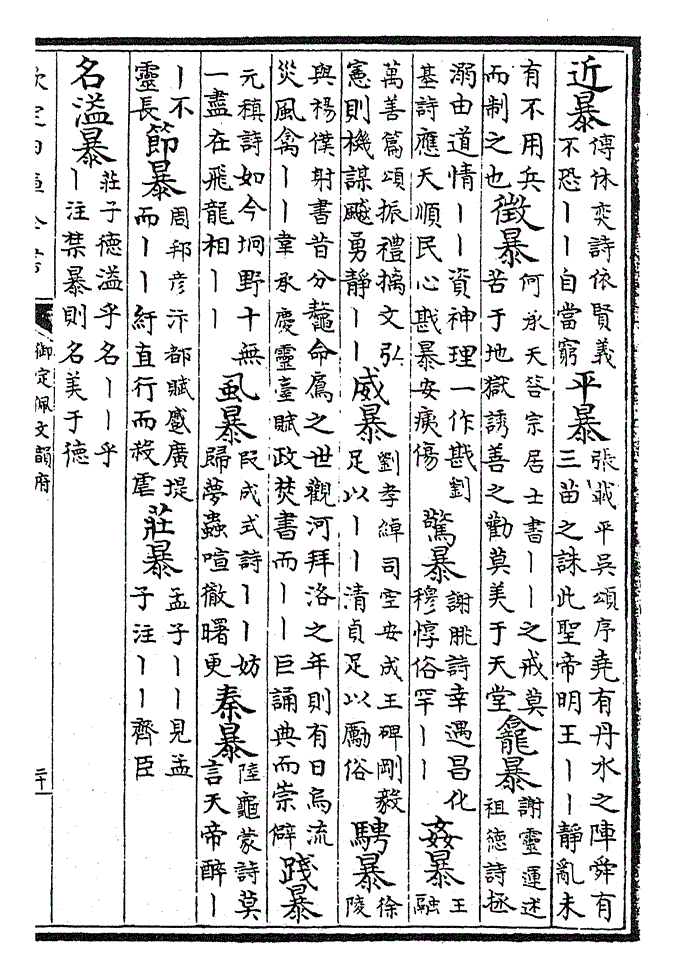 近暴傅休奕詩依賢義不恐丨丨自當窮平暴張載平吳頌序堯有丹水之陣舜有三苗之誅此聖帝明王丨丨靜亂未
有不用兵而制之也徵暴何承天答宗居士書丨丨之戒莫苦于地獄誘善之勸莫美于天堂龕暴謝靈運述祖德詩拯
溺由道情丨丨資神理一作戡劉基詩應天順民心戡暴安痍傷驚暴謝朓詩幸遇昌化穆惇俗罕丨丨姦暴王融
萬善篇頌振禮摛文弘憲則機謀飈勇靜丨丨威暴劉孝綽司空安成王碑剛毅足以丨丨清貞足以勵俗騁暴徐陵
與楊僕射書昔分鼇命屬之世觀河拜洛之年則有日烏流災風禽丨丨韋承慶靈臺賦政焚書而丨丨巨誦典而崇僻踐暴
元稹詩如今坰野十無一盡在飛龍相丨丨風暴段成式詩丨丨妨歸夢蟲喧徹曙更秦暴陸龜蒙詩莫言天帝醉丨
丨不靈長節暴周邦彥汴都賦蹙廣堤而丨丨紆直行而殺虐莊暴孟子丨丨見孟子注丨丨齊臣
名溢暴莊子德溢乎名丨丨乎丨注禁暴則名美于德
欽定四庫全書
御定佩文韻府